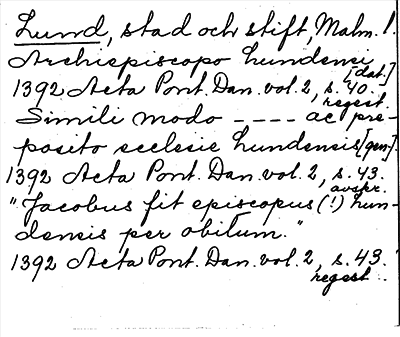 Lund, stad och stift, Malm. l.
Archiepiscopo Lundensi
[dat.]
1392 Acta Pont. Dan. vol. 2, s. 40.
regest.
Simili modo ---- ac pre-
posito ecclesie Lundensis [gen.].
1392 Acta Pont. Dan. vol. 2, s. 43.
avskr.
"Jacobus fit episcopus (!) Lun-
densis per obitum."
1392 Acta Pont. Dan. vol. 2, s. 43.
regest.